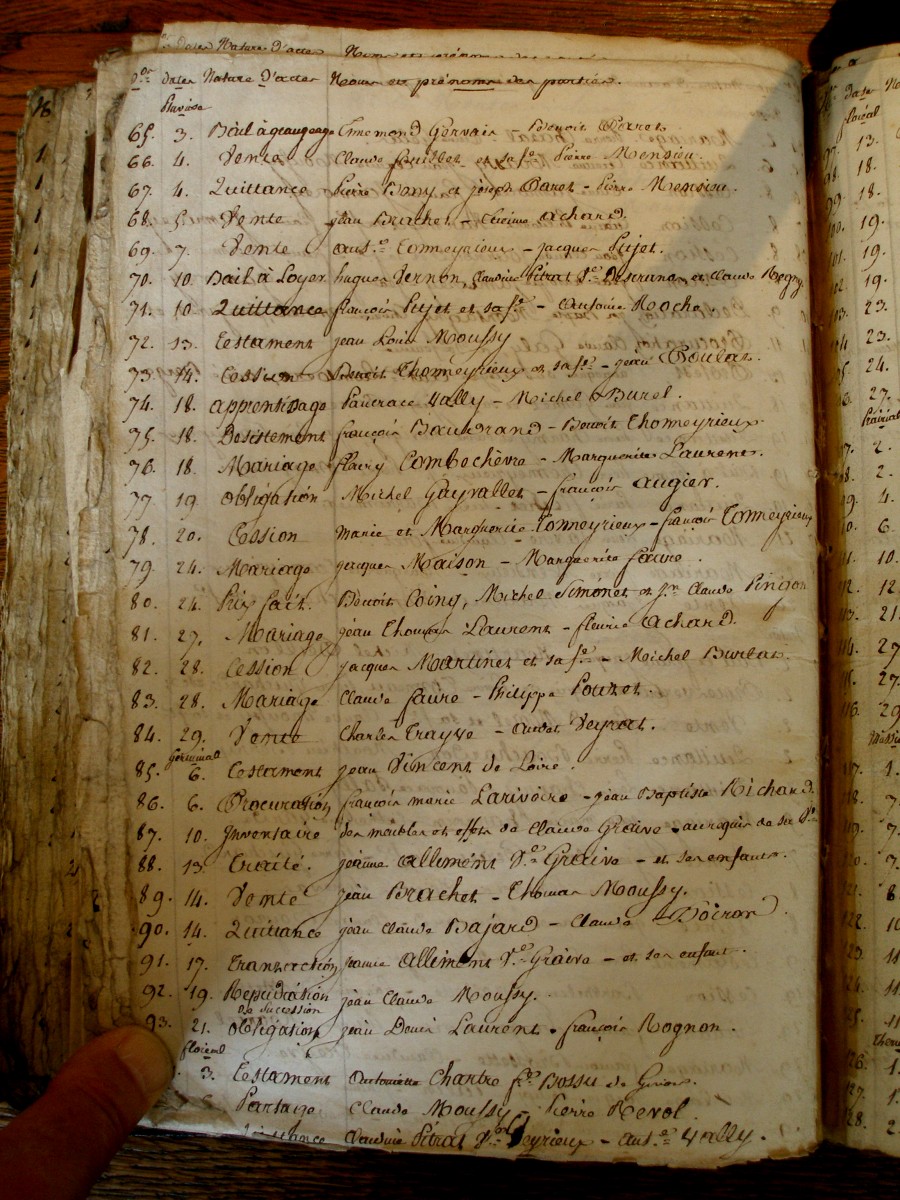 Dates Nature d'actes
Nos Dates Nature d'actes Noms et prénoms des parties.
Pluviose
65. 3. Bail à grangeage Ennemond Gervais Benoit Perret
66. 4. Vente Claude et sa fe. Pierre Monsieu.
67. 4. Quittance Pierre Bony et joseph - Pierre Monsieu.
68. 5. Vente jean Brachet - Achard.
69. 7. Vente ant.e Tomeyrieux - jacques Pijet.
70. 10. Bail à Loyer hugues Vernon, Claudine Pitrat Ve. et Claude Regny.
71. 10 Quittance françois Pijet et sa fe. - Antoine Roche.
72. 13. Testament jean Louis Moussy
73. 14. Cession Benoit Thomeyrieux et sa fe. - jean
74. 18. apprentisage Pancrace Vally - Michel Burel.
75. 18. Desistement françois Baudrand - Benoit Thomeyrieux
76. 18 Mariage fleury Combechèvre - Marguerite Laurent.
77. 19. obligation Michel Gayvallet - françois augier.
78. 20. Cession marie et Marguerite Tomeyrieux - françois Tomeyrieux
79 24. Mariage jacques Maison - Marguerite faure.
80. 24. Prix fait. Benoit Coing, Michel Simonet et jn. Claude Pingon
81. 27. Mariage jean Thomas Laurent - fleurie Achard.
82. 28. Cession jacques Martinet et sa fe. - Michel Burlat.
83. 28. Mariage Claude faure - Philippe Pouzet.
84. 29. Vente Charles Trayve - Veyrat.
Germinal
85. 6. Testament jean Vincent de Loire.
86. 6. Procuration françois marie Larivoire - jean Baptiste Richard.
87. 10. Inventaire des meubles et effets de Claude Graive - au requis de sa Ve.
88. 13. Traité. jeanne allement Ve. Graive - et ses enfants.
89. 14. Vente jean Brachet - Thomas Moussy.
90. 14. Quittance jean Claude Bajard - Claude Poiron.
91. 17. Transaction jeanne Allement Ve. Graive - et ses enfants.
92. 19. Repudiation jean Claude Moussy.
de succession
93. 21. obligation jean Denis Laurent - françois Rognon.
floréal
3. Testament Antoinette Chartre fe. Bossu de Givors.
5. Partage Claude Moussy - Pierre Revol.
Quittance Claudine Pitrat Ve. - ant.e Vally.
floréal
13.
18.
18.
19.
19.
19
23.
23.
24.
27.
Prairial
2.
2.
4.
6.
10.
12
21.
27
27.
29
1.
7.
7.
7.
8
10
11
11
11
1.
1.
2.